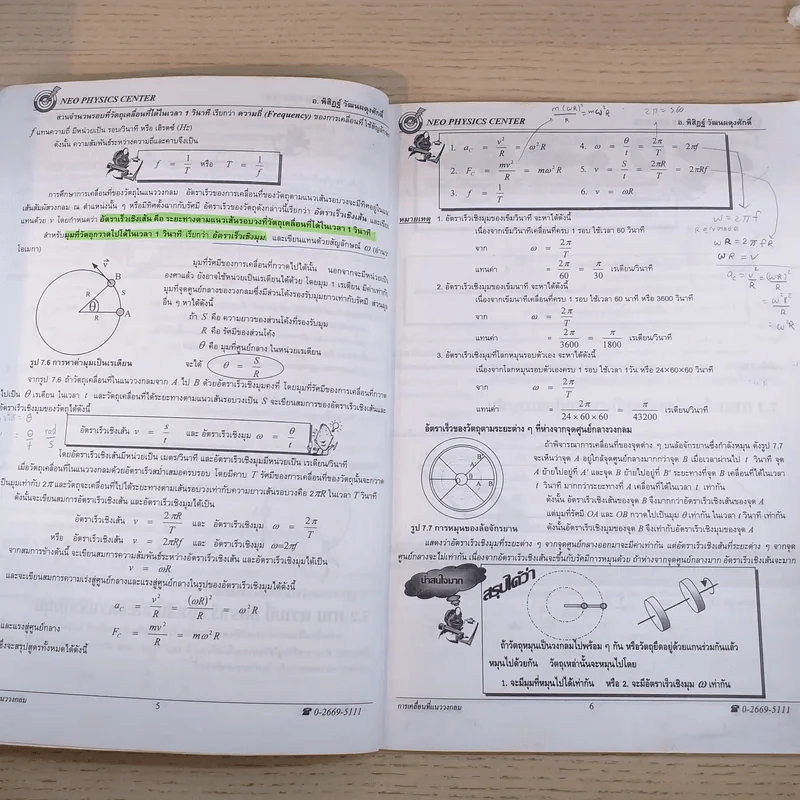 NEO PHYSICS CENTER
อ. พิสิฏฐ์ วัฒนผดุงศักดิ์
ส่วนจำนวนรอบที่วัตถุเคลื่อนที่ได้ในเวลา 1 วินาที เรียกว่า ความถี่ (Frequency) ของการเคลื่อนที่ใช้สัญลักษณ์
f แทนความถี่ มีหน่วยเป็น รอบ/วินาที หรือ เฮิรตซ์ (Hz)
ดังนั้น ความสัมพันธ์ระหว่างความถี่และคาบจึงเป็น
f = 1/T หรือ T = 1/f
การศึกษาการเคลื่อนที่ของวัตถุในแนววงกลม อัตราเร็วของการเคลื่อนที่ของวัตถุตามแนวเส้นรอบวงจะมีทิศอยู่ในแนว
เส้นสัมผัสวงกลม ณ ตำแหน่งนั้น ๆ หรือมีทิศตั้งฉากกับรัศมี อัตราเร็วของวัตถุดังกล่าวนี้เรียกว่า อัตราเร็วเชิงเส้น และเขียน
แทนด้วย v โดยกำหนดว่า อัตราเร็วเชิงเส้น คือ ระยะทางตามแนวเส้นรอบวงที่วัตถุเคลื่อนที่ได้ในเวลา 1 วินาที
สำหรับมุมที่วัตถุกวาดไปได้ในเวลา 1 วินาที เรียกว่า อัตราเร็วเชิงมุม และเขียนแทนด้วยสัญลักษณ์ ω (อ่านว่า
โอเมกา)
v B S R θ A R
มุมที่รัศมีของการเคลื่อนที่กวาดไปได้นั้น นอกจากจะมีหน่วยเป็น
องศาแล้ว ยังอาจใช้หน่วยเป็นเรเดียนได้ด้วย โดยมุม 1 เรเดียน มีค่าเท่ากับ
มุมที่จุดศูนย์กลางของวงกลมซึ่งมีส่วนโค้งรองรับมุมยาวเท่ากับรัศมี ส่วนมุม
อื่น ๆ หาได้ดังนี้
ถ้า S คือ ความยาวของส่วนโค้งที่รองรับมุม
R คือ รัศมีของส่วนโค้ง
θ คือ มุมที่ศูนย์กลาง ในหน่วยเรเดียน
จะได้ θ = S/R
รูป 7.6 การหาค่ามุมเป็นเรเดียน
จากรูป 7.6 ถ้าวัตถุเคลื่อนที่ในแนววงกลมจาก A ไป B ด้วยอัตราเร็วเชิงมุมคงที่ โดยมุมที่รัศมีของการเคลื่อนที่กวาด
ไปเป็น θ เรเดียน ในเวลา t และวัตถุเคลื่อนที่ได้ระยะทางตามแนวเส้นรอบวงเป็น S จะเขียนสมการของอัตราเร็วเชิงเส้นและ
อัตราเร็วเชิงมุมของวัตถุได้ดังนี้
= θ/t rad/s
อัตราเร็วเชิงเส้น v = s/t และ อัตราเร็วเชิงมุม ω = θ/t
โดยอัตราเร็วเชิงเส้นมีหน่วยเป็น เมตร/วินาที และอัตราเร็วเชิงมุมมีหน่วยเป็น เรเดียน/วินาที
เมื่อวัตถุเคลื่อนที่ในแนววงกลมด้วยอัตราเร็วสม่ำเสมอครบรอบ โดยมีคาบ T รัศมีของการเคลื่อนที่ของวัตถุนั้นจะกวาด
เป็นมุมเท่ากับ 2π และวัตถุจะเคลื่อนที่ไปได้ระยะทางตามเส้นรอบวงเท่ากับความยาวเส้นรอบวงคือ 2πR ในเวลา T วินาที
ดังนั้นจะเขียนสมการอัตราเร็วเชิงเส้น และอัตราเร็วเชิงมุมได้เป็น
อัตราเร็วเชิงเส้น v = 2πR/T และ อัตราเร็วเชิงมุม ω = 2π/T
หรือ อัตราเร็วเชิงเส้น v = 2πRf และ อัตราเร็วเชิงมุม ω=2πf
จากสมการข้างต้นนี้ จะเขียนสมการความสัมพันธ์ระหว่างอัตราเร็วเชิงเส้น และอัตราเร็วเชิงมุมได้เป็น
v = ωR
และจะเขียนสมการความเร่งสู่ศูนย์กลางและแรงสู่ศูนย์กลางในรูปของอัตราเร็วเชิงมุมได้ดังนี้
aC = v²/R = (ωR)²/R = ω²R
และแรงสู่ศูนย์กลาง FC = mv²/R = mω²R
ซึ่งจะสรุปสูตรทั้งหมดได้ดังนี้
แนววงกลม
5
☎ 0-2669-5111
m(ωR)²/R = mω²R
2π = 360
NEO PHYSICS CENTER
อ. พิสิฏฐ์ วัฒนผดุงศักดิ์
1. aC = v²/R = ω²R 4. ω = θ/t = 2π/T = 2πf
2. FC = mv²/R = mω²R 5. v = S/t = 2πR/T = 2πRf
3. f = 1/T 6. v = ωR
หมายเหตุ 1. อัตราเร็วเชิงมุมของเข็มวินาที จะหาได้ดังนี้
เนื่องจากเข็มวินาทีเคลื่อนที่ครบ 1 รอบ ใช้เวลา 60 วินาที
จาก ω = 2π/T
แทนค่า = 2π/60 = π/30 เรเดียน/วินาที
2. อัตราเร็วเชิงมุมของเข็มนาที จะหาได้ดังนี้
เนื่องจากเข็มนาทีเคลื่อนที่ครบ 1 รอบ ใช้เวลา 60 นาที หรือ 3600 วินาที
จาก ω = 2π/T
แทนค่า = 2π/3600 = π/1800 เรเดียน/วินาที
3. อัตราเร็วเชิงมุมที่โลกหมุนรอบตัวเอง จะหาได้ดังนี้
เนื่องจากโลกหมุนรอบตัวเองครบ 1 รอบ ใช้เวลา 1วัน หรือ 24×60×60 วินาที
จาก ω = 2π/T
แทนค่า = 2π/24×60×60 = π/43200 เรเดียน/วินาที
ω = 2πf
ωR = 2πfR
ωR = v
aC = v²/R = (ωR)²/R
= ω²R²/R
= ω²R
อัตราเร็วของวัตถุตามระยะต่าง ๆ ที่ห่างจากจุดศูนย์กลางวงกลม
B' B A' A θ
ถ้าพิจารณาการเคลื่อนที่ของจุดต่าง ๆ บนล้อจักรยานซึ่งกำลังหมุน ดังรูป 7.7
จะเห็นว่าจุด A อยู่ใกล้จุดศูนย์กลางมากกว่าจุด B เมื่อเวลาผ่านไป t วินาที จุด
A ย้ายไปอยู่ที่ A' และจุด B ย้ายไปอยู่ที่ B' ระยะทางที่จุด B เคลื่อนที่ได้ในเวลา
t วินาที มากกว่าระยะทางที่ A เคลื่อนที่ได้ในเวลา t เท่ากัน
ดังนั้น อัตราเร็วเชิงเส้นของจุด B จึงมากกว่าอัตราเร็วเชิงเส้นของจุด A
แต่มุมที่รัศมี OA และ OB กวาดไปเป็นมุม θ เท่ากัน ในเวลา t วินาที เท่ากัน
รูป 7.7 การหมุนของล้อจักรยาน
ดังนั้นอัตราเร็วเชิงมุมของจุด B จึงเท่ากับอัตราเร็วเชิงมุมของจุด A
แสดงว่าอัตราเร็วเชิงมุมที่ระยะต่าง ๆ จากจุดศูนย์กลางออกมาจะมีค่าเท่ากัน แต่อัตราเร็วเชิงเส้นที่ระยะต่าง ๆ จากจุด
ศูนย์กลางจะไม่เท่ากัน เนื่องจากอัตราเร็วเชิงเส้นจะขึ้นกับรัศมีการหมุนด้วย ถ้าห่างจากจุดศูนย์กลางมาก อัตราเร็วเชิงเส้นจะมาก
น่าสนใจมาก
สรุปได้ว่า
ถ้าวัตถุหมุนเป็นวงกลมไปพร้อม ๆ กัน หรือวัตถุยึดอยู่ด้วยแกนร่วมกันแล้ว
หมุนไปด้วยกัน วัตถุเหล่านั้นจะหมุนไปโดย
1. จะมีมุมที่หมุนไปได้เท่ากัน หรือ 2. จะมีอัตราเร็วเชิงมุม ω เท่ากัน
การเคลื่อนที่แนววงกลม
6
☎ 0-2669-5111